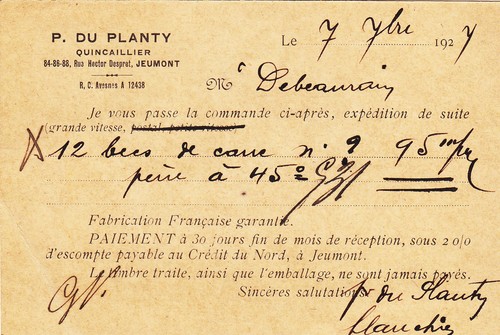 P. DU PLANTY
QUINCAILLIER
84-86-88, Rue Hector Despret, JEUMONT
R. C. Avesnes A 12438
Le 7 7bre 1927
M Debeaurain
Je vous passe la commande ci-après, expédition de suite
(grande vitesse, postal, petite vitesse)
12 becs de cane n° 9 95
à 45°
Fabrication Française garantie.
PAIEMENT à 30 jours fin de mois de réception, sous 2 o/o
d'escompte payable au Crédit du Nord, à Jeumont.
Le timbre traite, ainsi que l'emballage, ne sont jamais payés.
Sincères salutations
p. du Planty